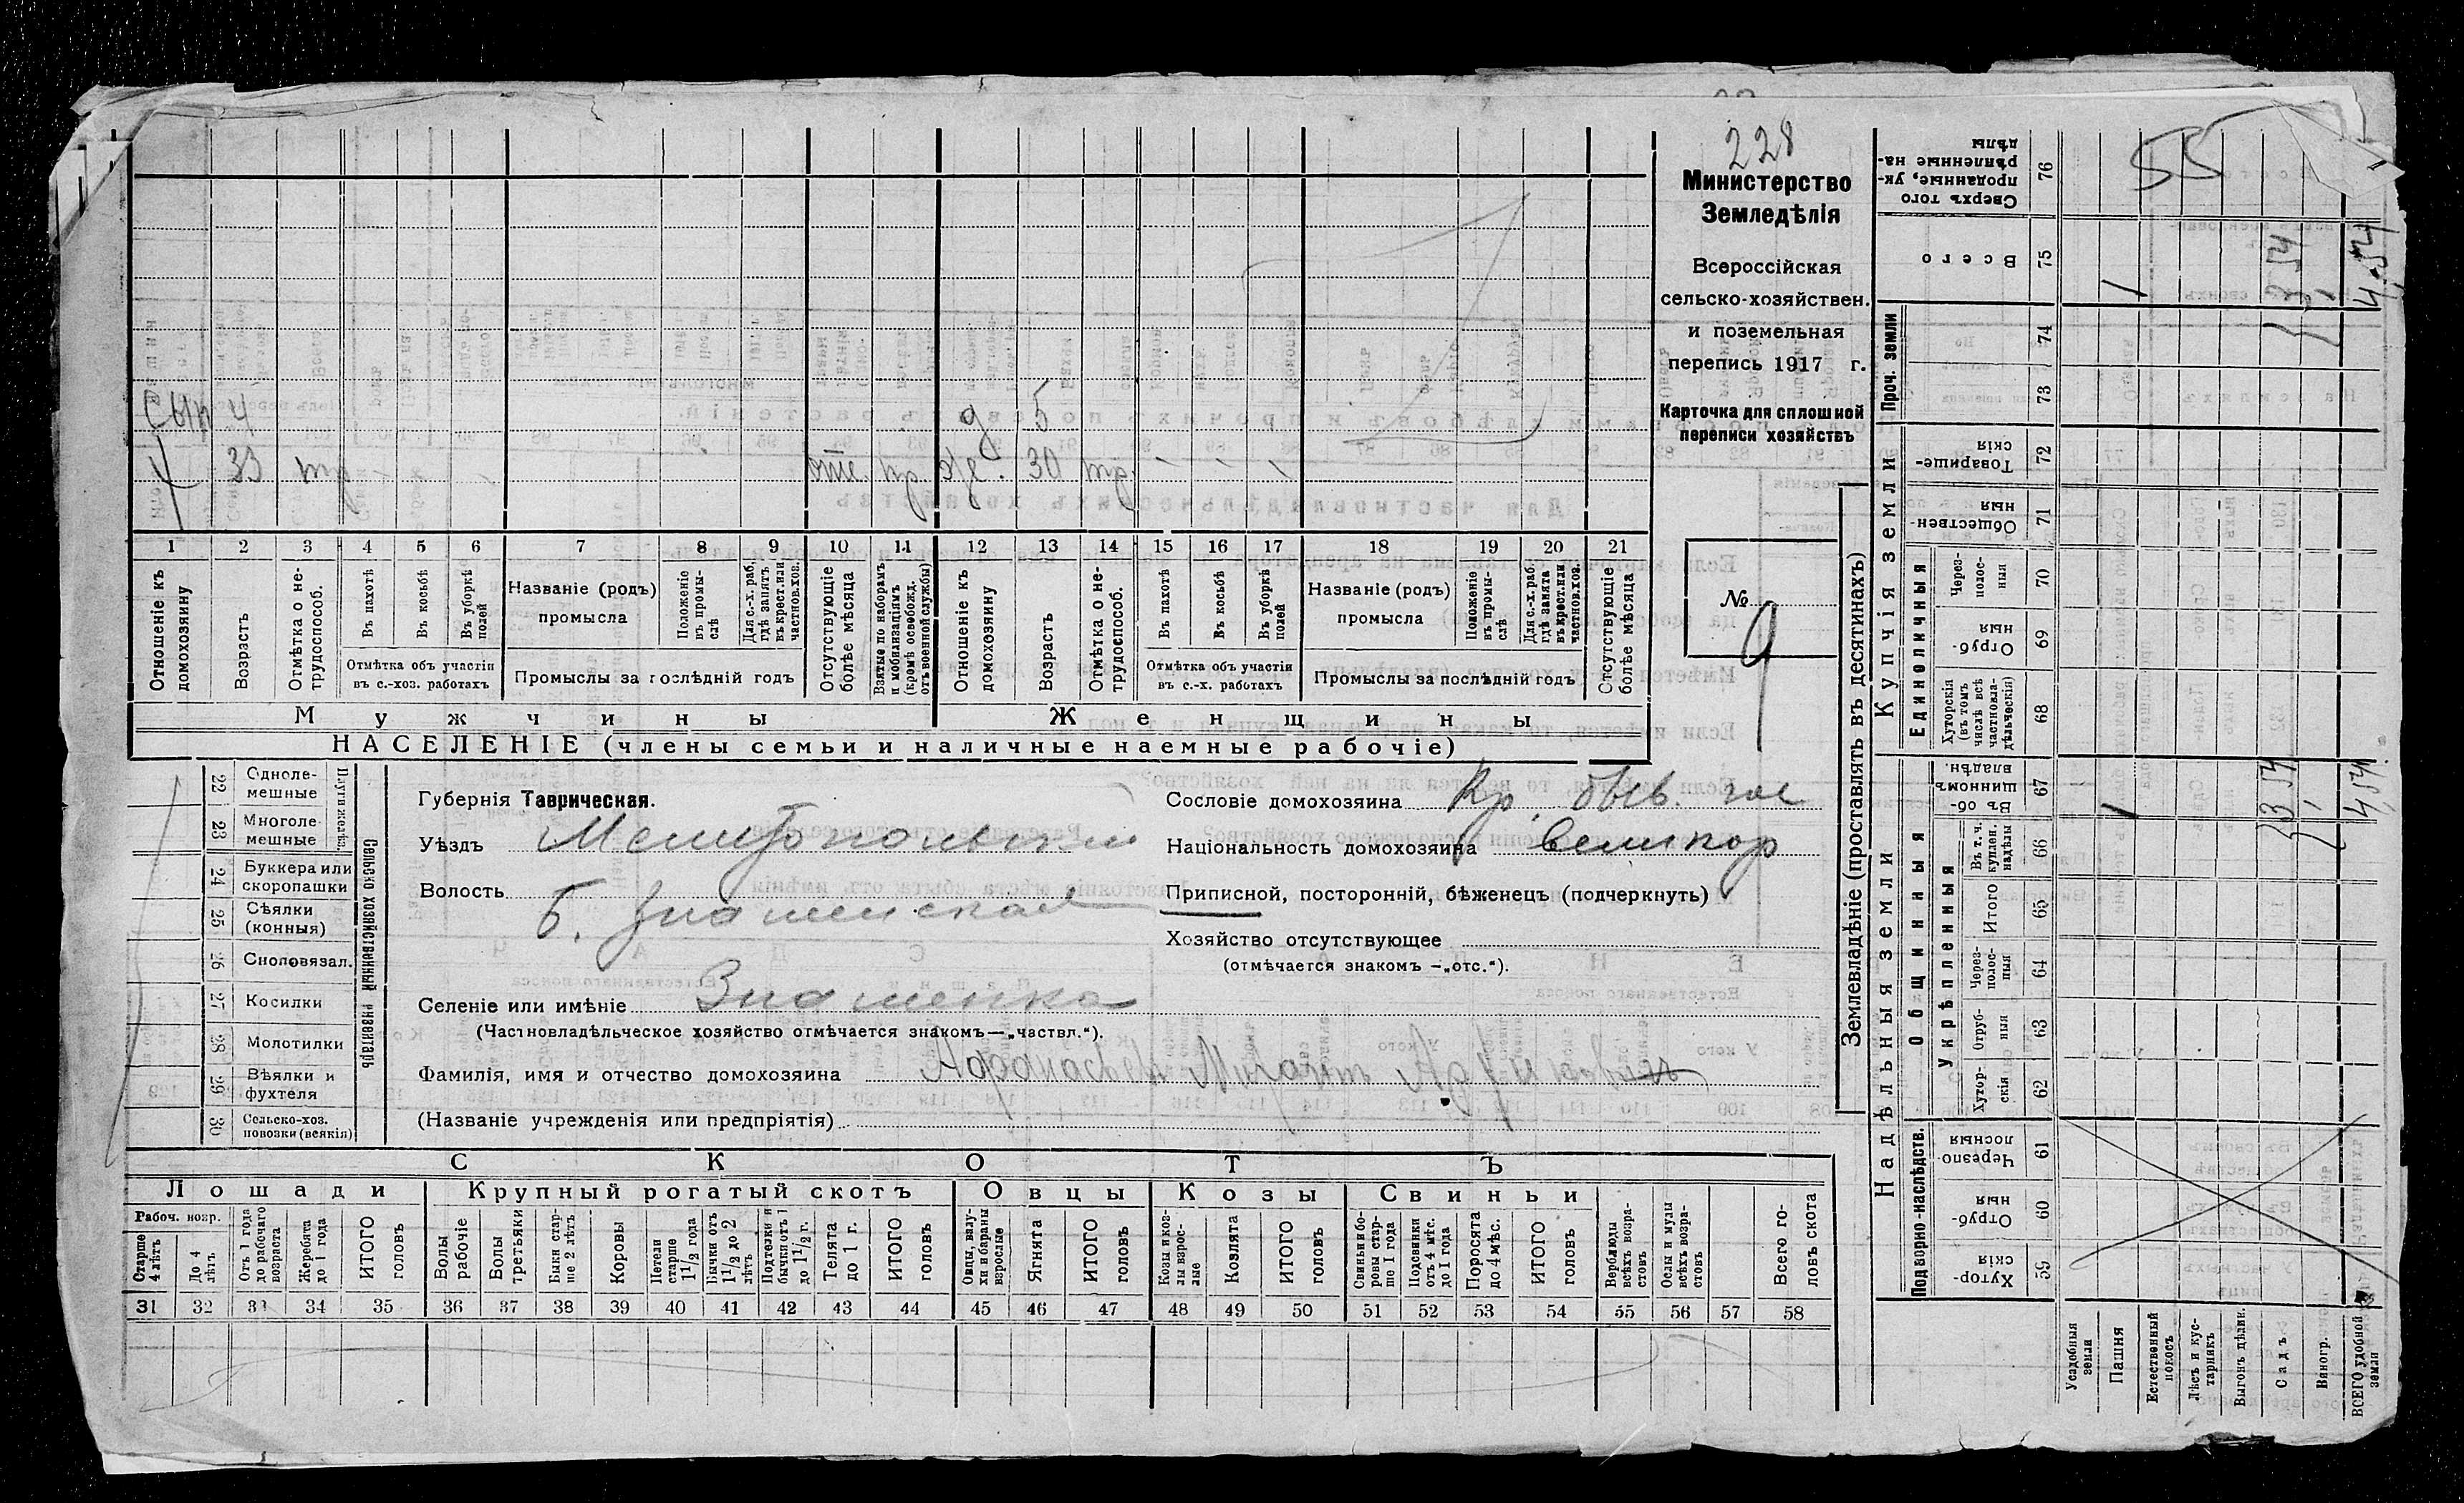 228
Министерство
Земледѣлія
Всероссійская
сельско-хозяйствен.
и поземельная
перепись 1917 г.
Карточка для сплошной
переписи хозяйствъ
№
9
Сын 4 д 5
33 отс. 30
1 2 3 4 5 6 7 8 9 10 11 12 13 14 15 16 17 18 19 20 21
Отношеніе къ домохозяину
Возрастъ
Отмѣтка о нетрудоспособ.
Въ пахотѣ
Въ косьбѣ
Въ уборкѣ полей
Отмѣтка объ участіи
въ с.-хоз. работахъ
Названіе (родъ)
промысла
Положеніе въ промыслѣ
Для с.-х. раб. гдѣ занятъ въ крест. или частнов. хоз.
Промыслы за послѣдній годъ
Отсутствующіе болѣе мѣсяца
Взятые по наборамъ и мобилизаціямъ (кромѣ освобожд. отъ военной службы)
Отношеніе къ домохозяину
Возрастъ
Отмѣтка о нетрудоспособ.
Въ пахотѣ
Въ косьбѣ
Въ уборкѣ полей
Отмѣтка объ участіи
въ с.-х. работахъ
Названіе (родъ)
промысла
Положеніе въ промыслѣ
Для с.-х. раб. гдѣ занята въ крест. или частнов. хоз.
Промыслы за послѣдній годъ
Отсутствующіе болѣе мѣсяца
Мужчины
Женщины
НАСЕЛЕНІЕ (члены семьи и наличные наемные рабочіе)
22 Однолемешные
23 Многолемешные
24 Буккера или скоропашки
25 Сѣялки (конныя)
26 Сноповязал.
27 Косилки
28 Молотилки
29 Вѣялки и фухтеля
30 Сельско-хоз. повозки (всякія)
Сельско хозяйственный инвентарь
Губернія Таврическая.
Уѣздъ Мелитопольскій
Волость Б. Знаменская
Селеніе или имѣніе Знаменка
(Частновладѣльческое хозяйство отмѣчается знакомъ—„частвл.“).
Фамилія, имя и отчество домохозяина
(Названіе учрежденія или предпріятія)
Сословіе домохозяина Кр. быв. гос
Національность домохозяина великор
Приписной, посторонній, бѣженецъ (подчеркнуть)
Хозяйство отсутствующее
(отмѣчается знакомъ —„отс.“).
СКОТЪ
Лошади
Крупный рогатый скотъ
Овцы
Козы
Свиньи
Рабоч. возр.
Старше 4 лѣтъ
До 4 лѣтъ
Отъ 1 года до рабочаго возраста
Жеребята до 1 года
ИТОГО головъ
Волы рабочіе
Волы третьяки
Быки старше 2 лѣтъ
Коровы
Нетели старше 1 1/2 года
Бычки отъ 1 1/2 до 2 лѣтъ
Подтелки и бычки отъ 1 до 1 1/2 г.
Телята до 1 г.
ИТОГО головъ
Овцы, валухи и бараны взрослые
Ягнята
ИТОГО головъ
Козы и козлы взрослые
Козлята
ИТОГО головъ
Свиньи и боровы старше 1 года
Подсвинки отъ 4 мѣс. до 1 года
Поросята до 4 мѣс.
ИТОГО головъ
Верблюды всѣхъ возрастовъ
Ослы и мулы всѣхъ возрастовъ
Всего головъ скота
31 32 33 34 35 36 37 38 39 40 41 42 43 44 45 46 47 48 49 50 51 52 53 54 55 56 57 58
Землевладѣніе (проставлять въ десятинахъ)
Надѣльныя земли
Купчія земли
Проч. земли
Подворно-наслѣдств.
Общинныя
Укрѣпленныя
Единоличныя
76 Сверхъ того проданные, укрѣпленные надѣлы
55
75 Всего 1 4,54
74
73
72 Товарищескія
71 Общественныя
70 Черезполосныя
69 Отрубныя
68 Хуторскія (въ томъ числѣ всѣ частновладѣльческія)
67 Въ общинномъ владѣн. 1 4,54
66 Въ т. ч. куплен. надѣлы
65 Итого
64 Черезполосныя
63 Отрубныя
62 Хуторскія
61 Черезполосныя
60 Отрубныя
59 Хуторскія
Усадебныя земли
Пашня
Естественный покосъ
Лѣсъ и кустарникъ
Выгонъ дѣлин.
Садъ
Виногр.
ВСЕГО удобной земли